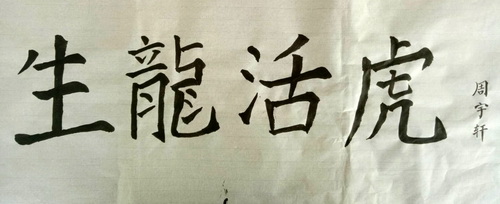 生龍活虎
周宇轩